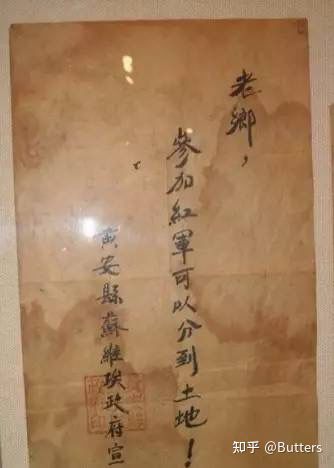 老鄉，
參加紅軍可以分到土地！
黄安縣蘇維埃政府宣
知乎 @Butters